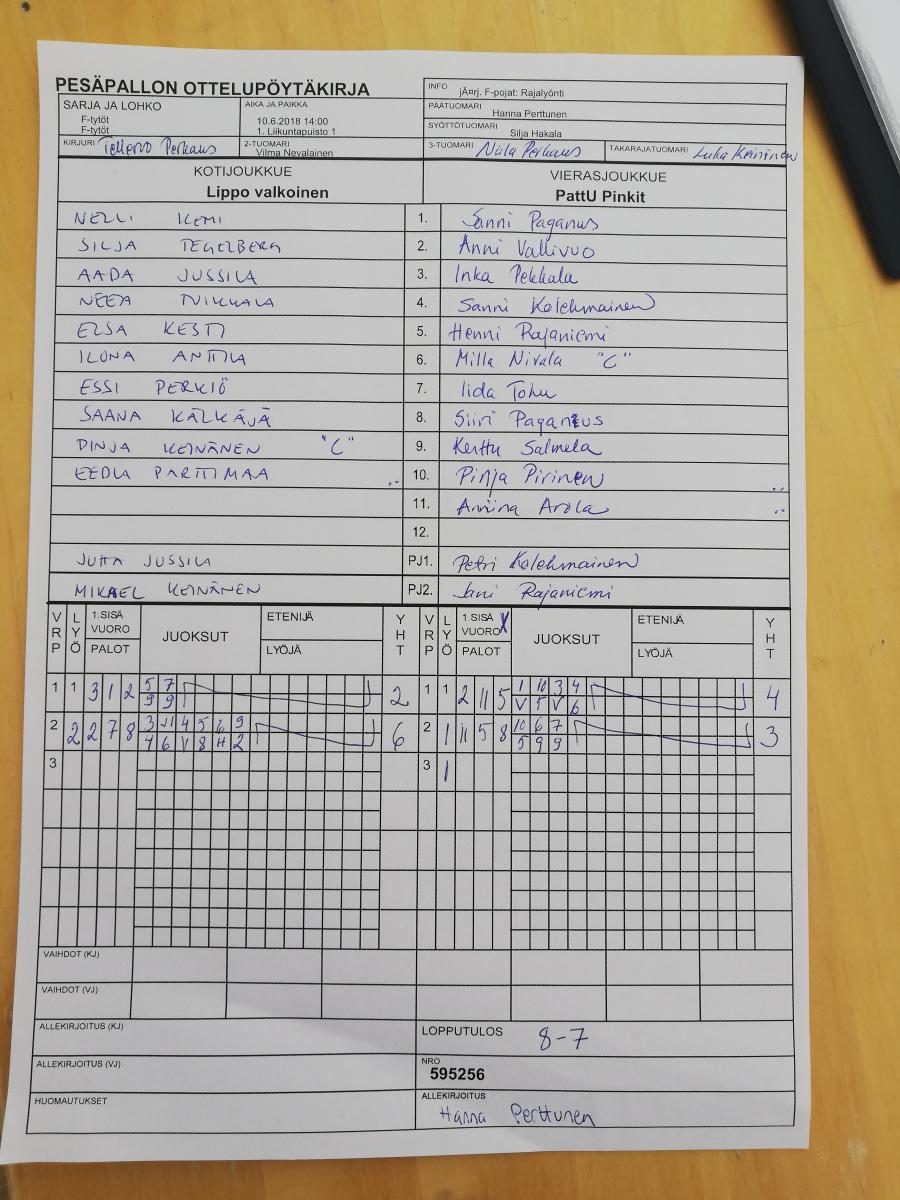 PESÄPALLON OTTELUPÖYTÄKIRJA
INFO jÃ¤rj. F-pojat: Rajalyönti
SARJA JA LOHKO
F-tytöt
F-tytöt
AIKA JA PAIKKA
10.6.2018 14:00
1. Liikuntapuisto 1
PÄÄTUOMARI
Hanna Perttunen
SYÖTTÖTUOMARI
Silja Hakala
KIRJURI Tellervo Perkaus
2-TUOMARI
Vilma Nevalainen
3-TUOMARI Niila Perkaus
TAKARAJATUOMARI Luka Keininen
KOTIJOUKKUE
Lippo valkoinen
VIERASJOUKKUE
PattU Pinkit
NELLI KEMI 1. Sanni Paganus
SILJA TEGELBERG 2. Anni Vallivuo
AADA JUSSILA 3. Inka Pekkala
NEEA TUIKKALA 4. Sanni Kolehmainen
ELSA KESTI 5. Henni Rajaniemi
ILONA ANTTILA 6. Milla Nivala "C"
ESSI PERKIÖ 7. Iida Tohu
SAANA KÄLKÄJÄ 8. Siiri Paganus
PINJA KEINÄNEN "C" 9. Kerttu Salmela
EEDLA PARTTIMAA 10. Pinja Pirinen
11. Anniina Arola
12.
JUHA JUSSILA PJ1. Petri Kolehmainen
MIKAEL KEINÄNEN PJ2. Jani Rajaniemi
VRP LYÖ 1.SISÄ VUORO PALOT JUOKSUT ETENIJÄ LYÖJÄ YHT VRP LYÖ 1.SISÄ VUORO X PALOT JUOKSUT ETENIJÄ LYÖJÄ YHT
1 1 3 1 2 5 7 2 1 1 2 11 5 1 10 3 4 4
9 9 V 5 V 6
2 2 2 7 8 3 11 4 5 6 9 6 2 1 11 5 8 10 6 7 3
4 6 V 8 H 2 5 9 9
3 3 1
VAIHDOT (KJ)
VAIHDOT (VJ)
ALLEKIRJOITUS (KJ)
LOPPUTULOS 8-7
ALLEKIRJOITUS (VJ)
NRO
595256
HUOMAUTUKSET
ALLEKIRJOITUS
Hanna Perttunen